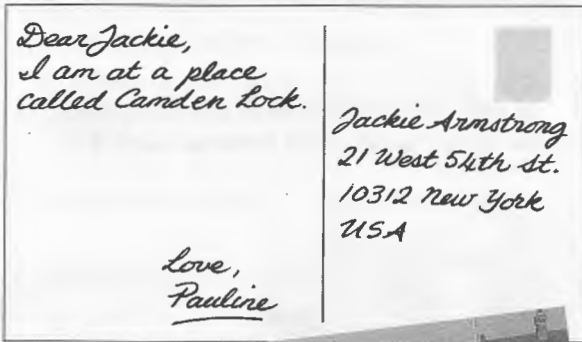 Dear Jackie,
I am at a place
called Camden Lock.
Love,
Pauline
Jackie Armstrong
21 West 54th St.
10312 New York
USA